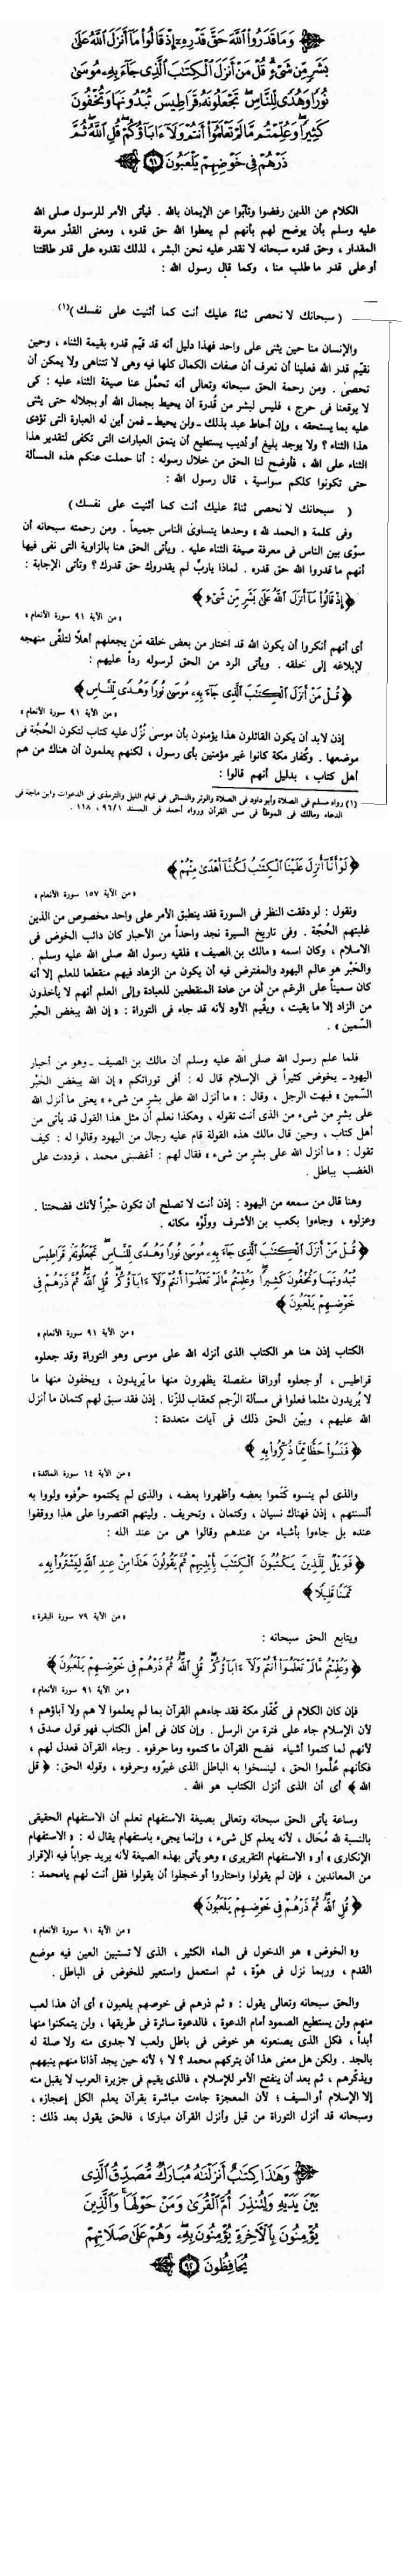 وَمَا قَدَرُوا۟ ٱللَّهَ حَقَّ قَدْرِهِۦٓ إِذْ قَالُوا۟ مَآ أَنزَلَ ٱللَّهُ عَلَىٰ
بَشَرٍ مِّن شَىْءٍ قُلْ مَنْ أَنزَلَ ٱلْكِتَـٰبَ ٱلَّذِى جَآءَ بِهِۦ مُوسَىٰ
نُورًا وَهُدًى لِّلنَّاسِ تَجْعَلُونَهُۥ قَرَاطِيسَ تُبْدُونَهَا وَتُخْفُونَ
كَثِيرًا وَعُلِّمْتُم مَّا لَمْ تَعْلَمُوٓا۟ أَنتُمْ وَلَآ ءَابَآؤُكُمْ قُلِ ٱللَّهُ ثُمَّ
ذَرْهُمْ فِى خَوْضِهِمْ يَلْعَبُونَ ٩١
الكلام عن الذين رفضوا وتأبّوا عن الإيمان بالله . فيأتى الأمر للرسول صلى الله
عليه وسلم بأن يوضح لهم بأنهم لم يعطوا الله حق قدره ، ومعنى القدْر معرفة
المقدار ، وحق قدره سبحانه لا نقدر عليه نحن البشر ، لذلك نقدره على قدر طاقتنا
أو على قدر ما طلب منا ، وكما قال رسول الله :
( سبحانك لا نحصى ثناءً عليك أنت كما أثنيت على نفسك )(١)
والإنسان منا حين يثنى على واحد فهذا دليل أنه قد قيّم قدره بقيمة الثناء ، وحين
نقيّم قدر الله فعلينا أن نعرف أن صفات الكمال كلها فيه وهى لا تتناهى ولا يمكن أن
تحصىٰ . ومن رحمة الحق سبحانه وتعالى أنه تحمّل عنا صيغة الثناء عليه : كى
لا يوقعنا فى حرج ، فليس لبشر من قُدرة أن يحيط بجمال الله أو بجلاله حتى يثنى
عليه بما يستحقه ، وإن أحاط عبد بذلك - ولن يحيط - فمن أين له العبارة التى تؤدى
هذا الثناء ؟ ولا يوجد بليغ أو أديب يستطيع أن ينمق العبارات التى تكفى لتقدير هذا
الثناء على الله ، فأوضح لنا الحق من خلال رسوله : أنا حملت عنكم هذه المسألة
حتى تكونوا كلكم سواسية ، قال رسول الله :
( سبحانك لا نحصى ثناءً عليك أنت كما أثنيت على نفسك )
وفى كلمة « الحمد لله » وحدها يتساوى الناس جميعاً . ومن رحمته سبحانه أن
سوّى بين الناس فى معرفة صيغة الثناء عليه . ويأتى الحق هنا بالزاوية التى نفى فيها
أنهم ما قدروا الله حق قدره . لماذا يارب لم يقدروك حق قدرك ؟ وتأتى الإجابة :
﴿ إِذْ قَالُوا۟ مَآ أَنزَلَ ٱللَّهُ عَلَىٰ بَشَرٍ مِّن شَىْءٍ ﴾
« من الآية ٩١ سورة الأنعام »
أى أنهم أنكروا أن يكون الله قد اختار من بعض خلقه مَن يجعلهم أهلاً لتلقّى منهجه
لإبلاغه إلى خلقه . ويأتى الرد من الحق لرسوله رداً عليهم :
﴿ قُلْ مَنْ أَنزَلَ ٱلْكِتَـٰبَ ٱلَّذِى جَآءَ بِهِۦ مُوسَىٰ نُورًا وَهُدًى لِّلنَّاسِ ﴾
« من الآية ٩١ سورة الأنعام »
إذن لابد أن يكون القائلون هذا يؤمنون بأن موسىٰ نُزّل عليه كتاب لتكون الحُجّة فى
موضعها . وكفار مكة كانوا غير مؤمنين بأى رسول ، لكنهم يعلمون أن هناك من هم
أهل كتاب ، بدليل أنهم قالوا :
(١) رواه مسلم فى الصلاة وأبو داود فى الصلاة والوتر والنسائى فى قيام الليل والترمذى فى الدعوات وابن ماجة فى
الدعاء ومالك فى الموطأ فى مس القرآن ورواه أحمد فى المسند ٩٦/١ ، ١١٨ .
﴿ لَوْ أَنَّآ أُنزِلَ عَلَيْنَا ٱلْكِتَـٰبُ لَكُنَّآ أَهْدَىٰ مِنْهُمْ ﴾
« من الآية ١٥٧ سورة الأنعام »
ونقول : لو دققت النظر فى السورة فقد ينطبق الأمر على واحد مخصوص من الذين
غلبتهم الحُجّة . وفى تاريخ السيرة نجد واحداً من الأحبار كان دائب الخوض فى
الاسلام ، وكان اسمه « مالك بن الصيف » فلقيه رسول الله صلى الله عليه وسلم .
والحَبْر هو عالم اليهود والمفترض فيه أن يكون من الزهاد فيهم منقطعا للعلم إلا أنه
كان سميناً على الرغم من أن من عادة المنقطعين للعبادة وإلى العلم أنهم لا يأخذون
من الزاد إلا ما يقيت ، ويقيم الأود لأنه قد جاء فى التوراة : « إن الله يبغض الحبْر
السّمين » .
فلما علم رسول الله صلى الله عليه وسلم أن مالك بن الصيف - وهو من أحبار
اليهود - يخوض كثيراً فى الإسلام قال له : أفى توراتكم « إن الله يبغض الحَبْر
السّمين » فبهت الرجل ، وقال : « ما أنزل الله على بشرٍ من شىء » يعنى ما أنزل الله
على بشرٍ من شىء من الذى أنت تقوله ، وهكذا نعلم أن مثل هذا القول قد يأتى من
أهل كتاب ، وحين قال مالك هذه القولة قام عليه رجال من اليهود وقالوا له : كيف
تقول : « ما أنزل الله على بشرٍ من شىء » فقال لهم : أغضبنى محمد ، فرددت على
الغضب بباطل .
وهنا قال من سمعه من اليهود : إذن أنت لا تصلح أن تكون حبْراً لأنك فضحتنا .
وعزلوه ، وجاءوا بكعب بن الأشرف وولّوْه مكانه .
﴿ قُلْ مَنْ أَنزَلَ ٱلْكِتَـٰبَ ٱلَّذِى جَآءَ بِهِۦ مُوسَىٰ نُورًا وَهُدًى لِّلنَّاسِ تَجْعَلُونَهُۥ قَرَاطِيسَ
تُبْدُونَهَا وَتُخْفُونَ كَثِيرًا وَعُلِّمْتُم مَّا لَمْ تَعْلَمُوٓا۟ أَنتُمْ وَلَآ ءَابَآؤُكُمْ قُلِ ٱللَّهُ ثُمَّ ذَرْهُمْ فِى
خَوْضِهِمْ يَلْعَبُونَ ﴾
« من الآية ٩١ سورة الأنعام »
الكتاب إذن هنا هو الكتاب الذى أنزله الله على موسى وهو التوراة وقد جعلوه
قراطيس ، أو جعلوه أوراقا منفصلة يظهرون منها ما يُريدون ، ويخفون منها ما
لا يُريدون مثلما فعلوا فى مسألة الرّجم كعقاب للزّنا . إذن فقد سبق لهم كتمان ما أنزل
الله عليهم ، وبيّن الحق ذلك فى آيات متعددة :
﴿ فَنَسُوا۟ حَظًّا مِّمَّا ذُكِّرُوا۟ بِهِۦ ﴾
« من الآية ١٤ سورة المائدة »
والذى لم ينسوه كتموا بعضه وأظهروا بعضه ، والذى لم يكتموه حرّفوه ولووا به
ألسنتهم ، إذن فهناك نسيان ، وكتمان ، وتحريف . وليتهم اقتصروا على هذا ووقفوا
عنده بل جاءوا بأشياء من عندهم وقالوا هى من عند الله :
﴿ فَوَيْلٌ لِّلَّذِينَ يَكْتُبُونَ ٱلْكِتَـٰبَ بِأَيْدِيهِمْ ثُمَّ يَقُولُونَ هَـٰذَا مِنْ عِندِ ٱللَّهِ لِيَشْتَرُوا۟ بِهِۦ
ثَمَنًا قَلِيلًا ﴾
« من الآية ٧٩ سورة البقرة »
ويتابع الحق سبحانه :
﴿ وَعُلِّمْتُم مَّا لَمْ تَعْلَمُوٓا۟ أَنتُمْ وَلَآ ءَابَآؤُكُمْ قُلِ ٱللَّهُ ثُمَّ ذَرْهُمْ فِى خَوْضِهِمْ يَلْعَبُونَ ﴾
« من الآية ٩١ سورة الأنعام »
فإن كان الكلام فى كُفّار مكة فقد جاءهم القرآن بما لم يعلموا لا هم ولا آباؤهم ؛
لأن الإسلام جاء على فترة من الرسل . وإن كان فى أهل الكتاب فهو قول صدق ؛
لأنهم لما كتموا أشياء فضح القرآن ما كتموه وما حرفوه . وجاء القرآن فعدل لهم ،
فكأنهم عُلّموا الحق ، لينسخوا به الباطل الذى غيّروه وحرفوه ، وقوله الحق : ﴿ قل
الله ﴾ أى أن الذى أنزل الكتاب هو الله .
وساعة يأتى الحق سبحانه وتعالى بصيغة الاستفهام نعلم أن الاستفهام الحقيقى
بالنسبة لله مُحَال ، لأنه يعلم كل شىء ، وإنما يجىء باستفهام يقال له : « الاستفهام
الإنكارى » أو « الاستفهام التقريرى » وهو يأتى بهذه الصيغة لأنه يريد جواباً فيه الإقرار
من المعاندين ، فإن لم يقولوا واحتاروا أو خجلوا أن يقولوا فقل أنت لهم يامحمد :
﴿ قُلِ ٱللَّهُ ثُمَّ ذَرْهُمْ فِى خَوْضِهِمْ يَلْعَبُونَ ﴾
« من الآية ٩١ سورة الأنعام »
و« الخوض » هو الدخول فى الماء الكثير ، الذى لا تستبين العين فيه موضع
القدم ، وربما نزل فى هوّة ، ثم استعمل واستعير للخوض فى الباطل .
والحق سبحانه وتعالى يقول : « ثم ذرهم فى خوضهم يلعبون » أى أن هذا لعب
منهم ولن يستطيع الصمود أمام الدعوة ، فالدعوة سائرة فى طريقها ، ولن يتمكنوا منها
أبداً ، فكل الذى يصنعونه هو خوض فى باطل ولعب لا جدوى منه ولا صلة له
بالجد . ولكن هل معنى هذا أن يتركهم محمد ؟ لا ؛ لأنه حين يجد آذانا منهم ينبههم
ويذكّرهم ، ثم بعد أن ينفتح الأمر للإسلام ، فالذى يقيم فى جزيرة العرب لا يقبل منه
إلا الإسلام أو السيف ؛ لأن المعجزة جاءت مباشرة بقرآن يعلم الكل إعجازه ،
وسبحانه قد أنزل التوراة من قبل وأنزل القرآن مباركا ، فالحق يقول بعد ذلك :
وَهَـٰذَا كِتَـٰبٌ أَنزَلْنَـٰهُ مُبَارَكٌ مُّصَدِّقُ ٱلَّذِى
بَيْنَ يَدَيْهِ وَلِتُنذِرَ أُمَّ ٱلْقُرَىٰ وَمَنْ حَوْلَهَا وَٱلَّذِينَ
يُؤْمِنُونَ بِٱلْـَٔاخِرَةِ يُؤْمِنُونَ بِهِۦ وَهُمْ عَلَىٰ صَلَاتِهِمْ
يُحَافِظُونَ ٩٢